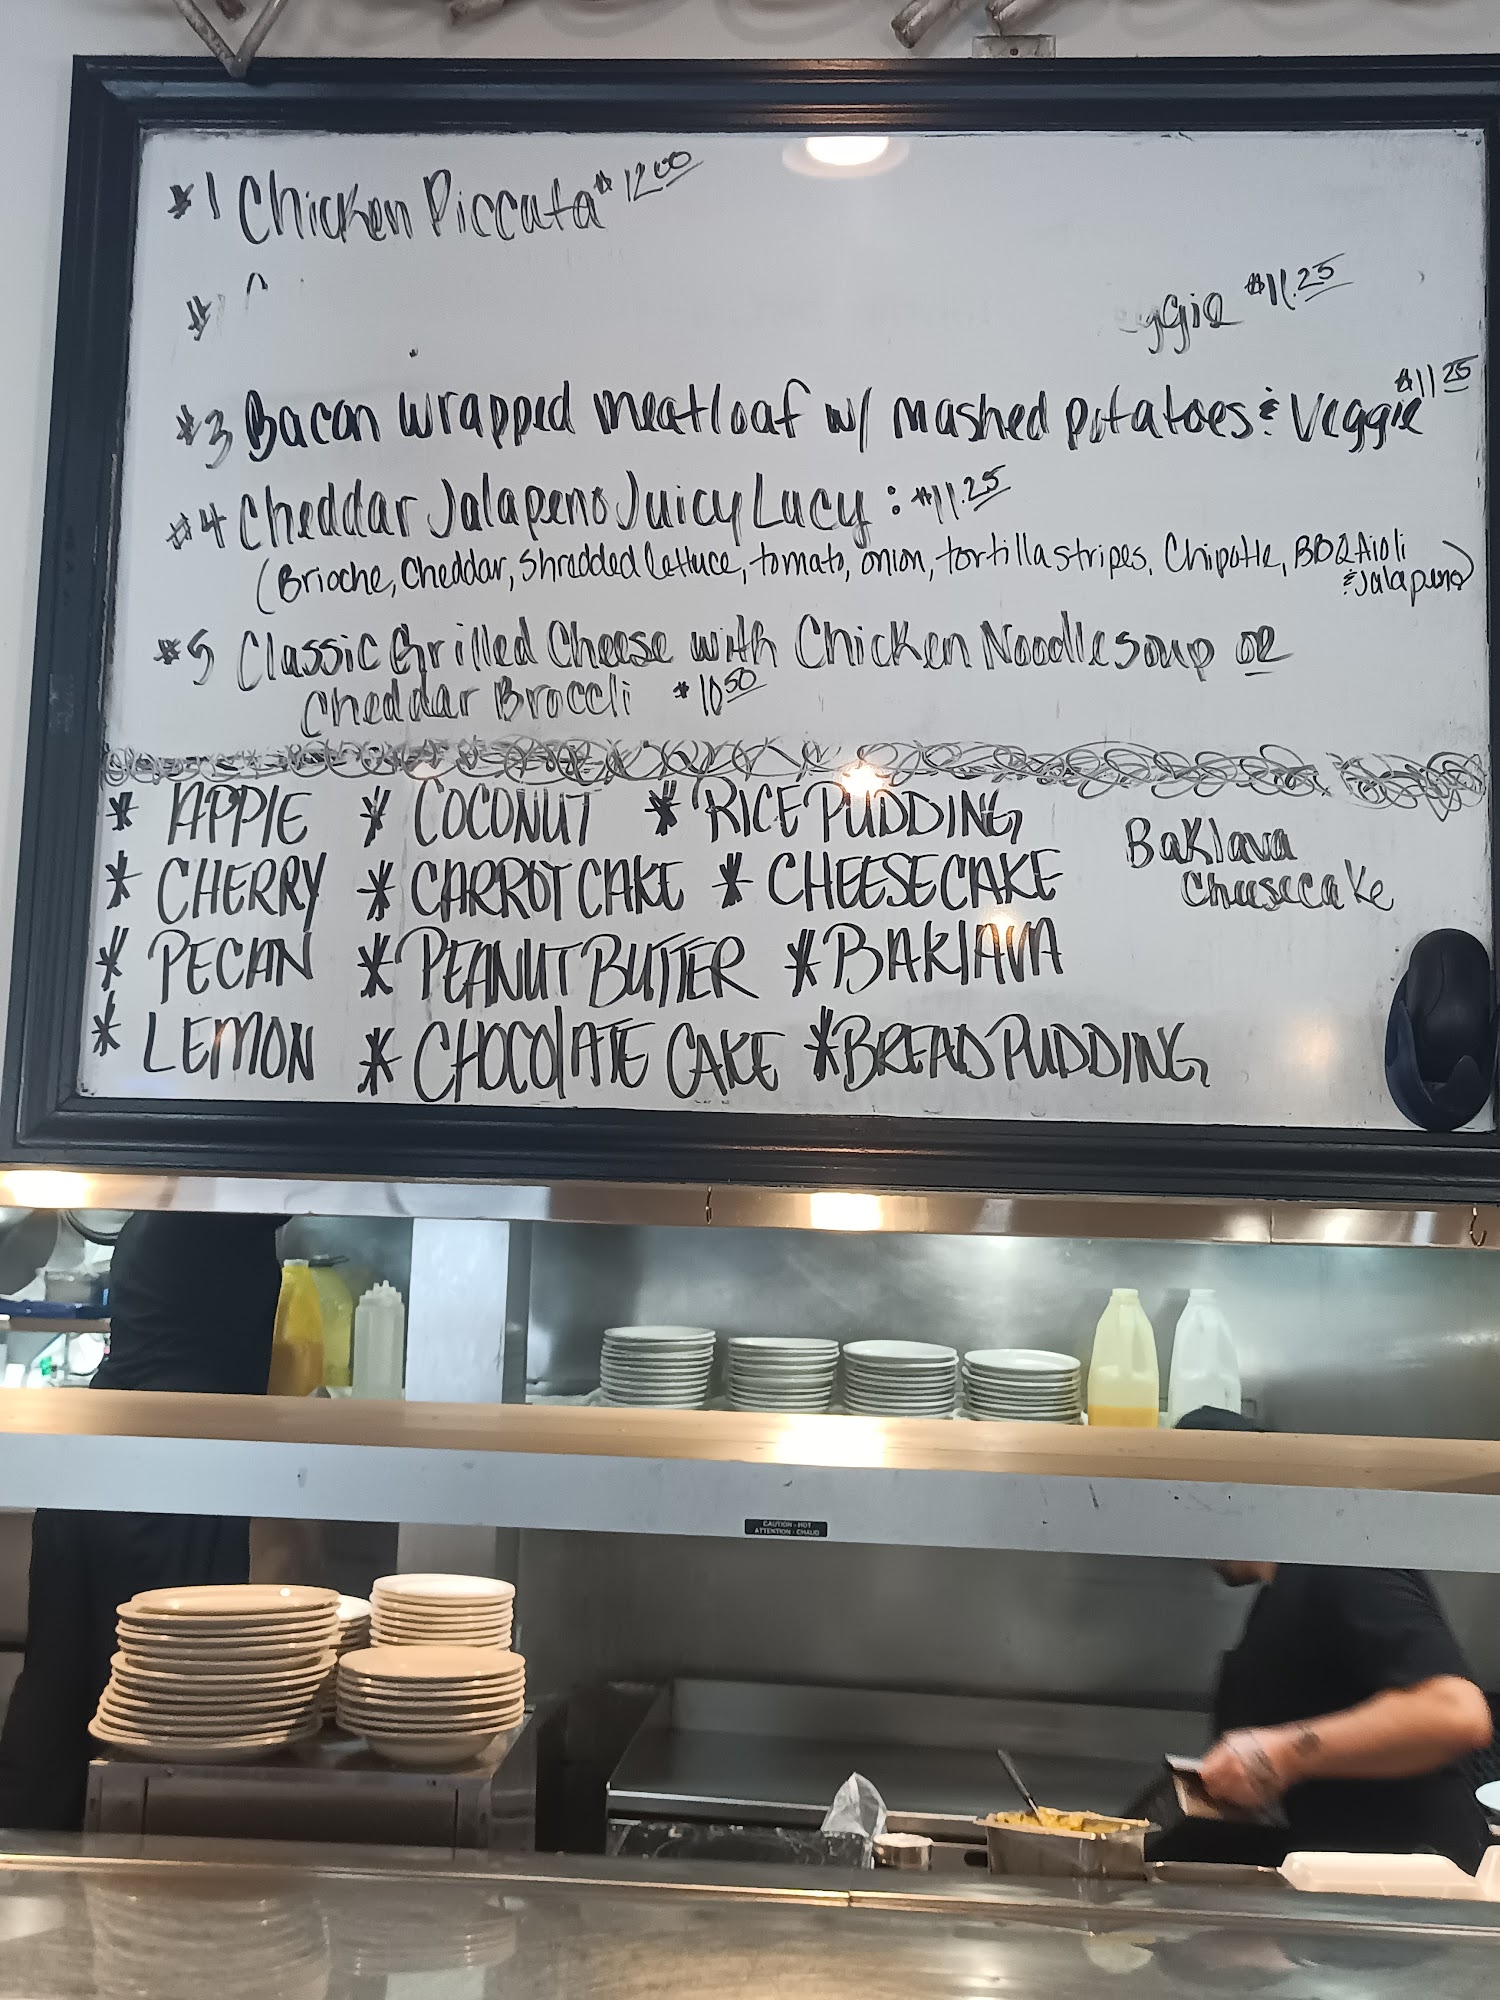 #1 Chicken Piccata $12.00
# $11.25
#3 Bacon wrapped meatloaf w/ mashed potatoes & Veggie $11.25
#4 Cheddar Jalapeno Juicy Lucy : $11.25
(Brioche, Cheddar, Shredded lettuce, tomato, onion, tortilla stripes, Chipotle, BBQ Aioli
& Jalapeno)
#5 Classic Grilled Cheese with Chicken Noodle soup OR
Cheddar Broccli $10.50
* APPLE * COCONUT * RICE PUDDING
* CHERRY * CARROT CAKE * CHEESECAKE
Baklava
Cheesecake
* PECAN * PEANUT BUTTER * BAKLAVA
* LEMON * CHOCOLATE CAKE * BREAD PUDDING
CAUTION - HOT
ATTENTION - CHAUD